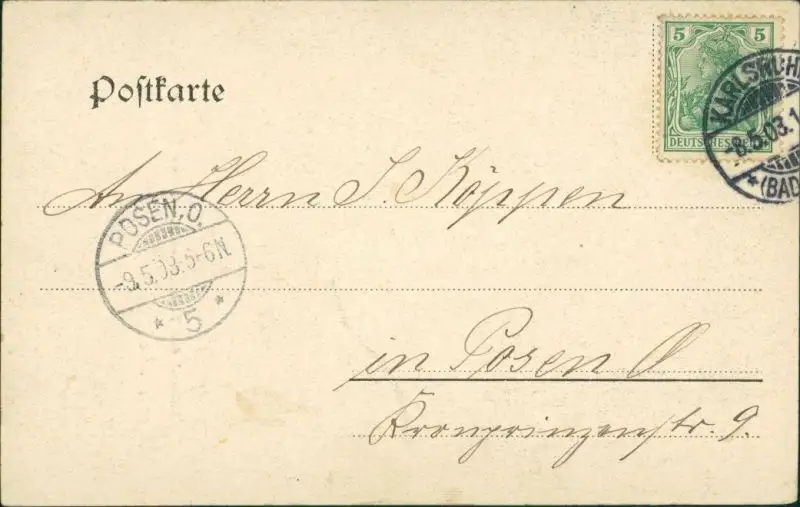 Postkarte
5 5
DEUTSCHES
KARLSRUH
-8.5.03.1
* (BAD
An Herrn J. Köppen
POSEN, O.
-9.5.03.5-6N.
* 5 *
in Posen O
Kronprinzenstr. 9.